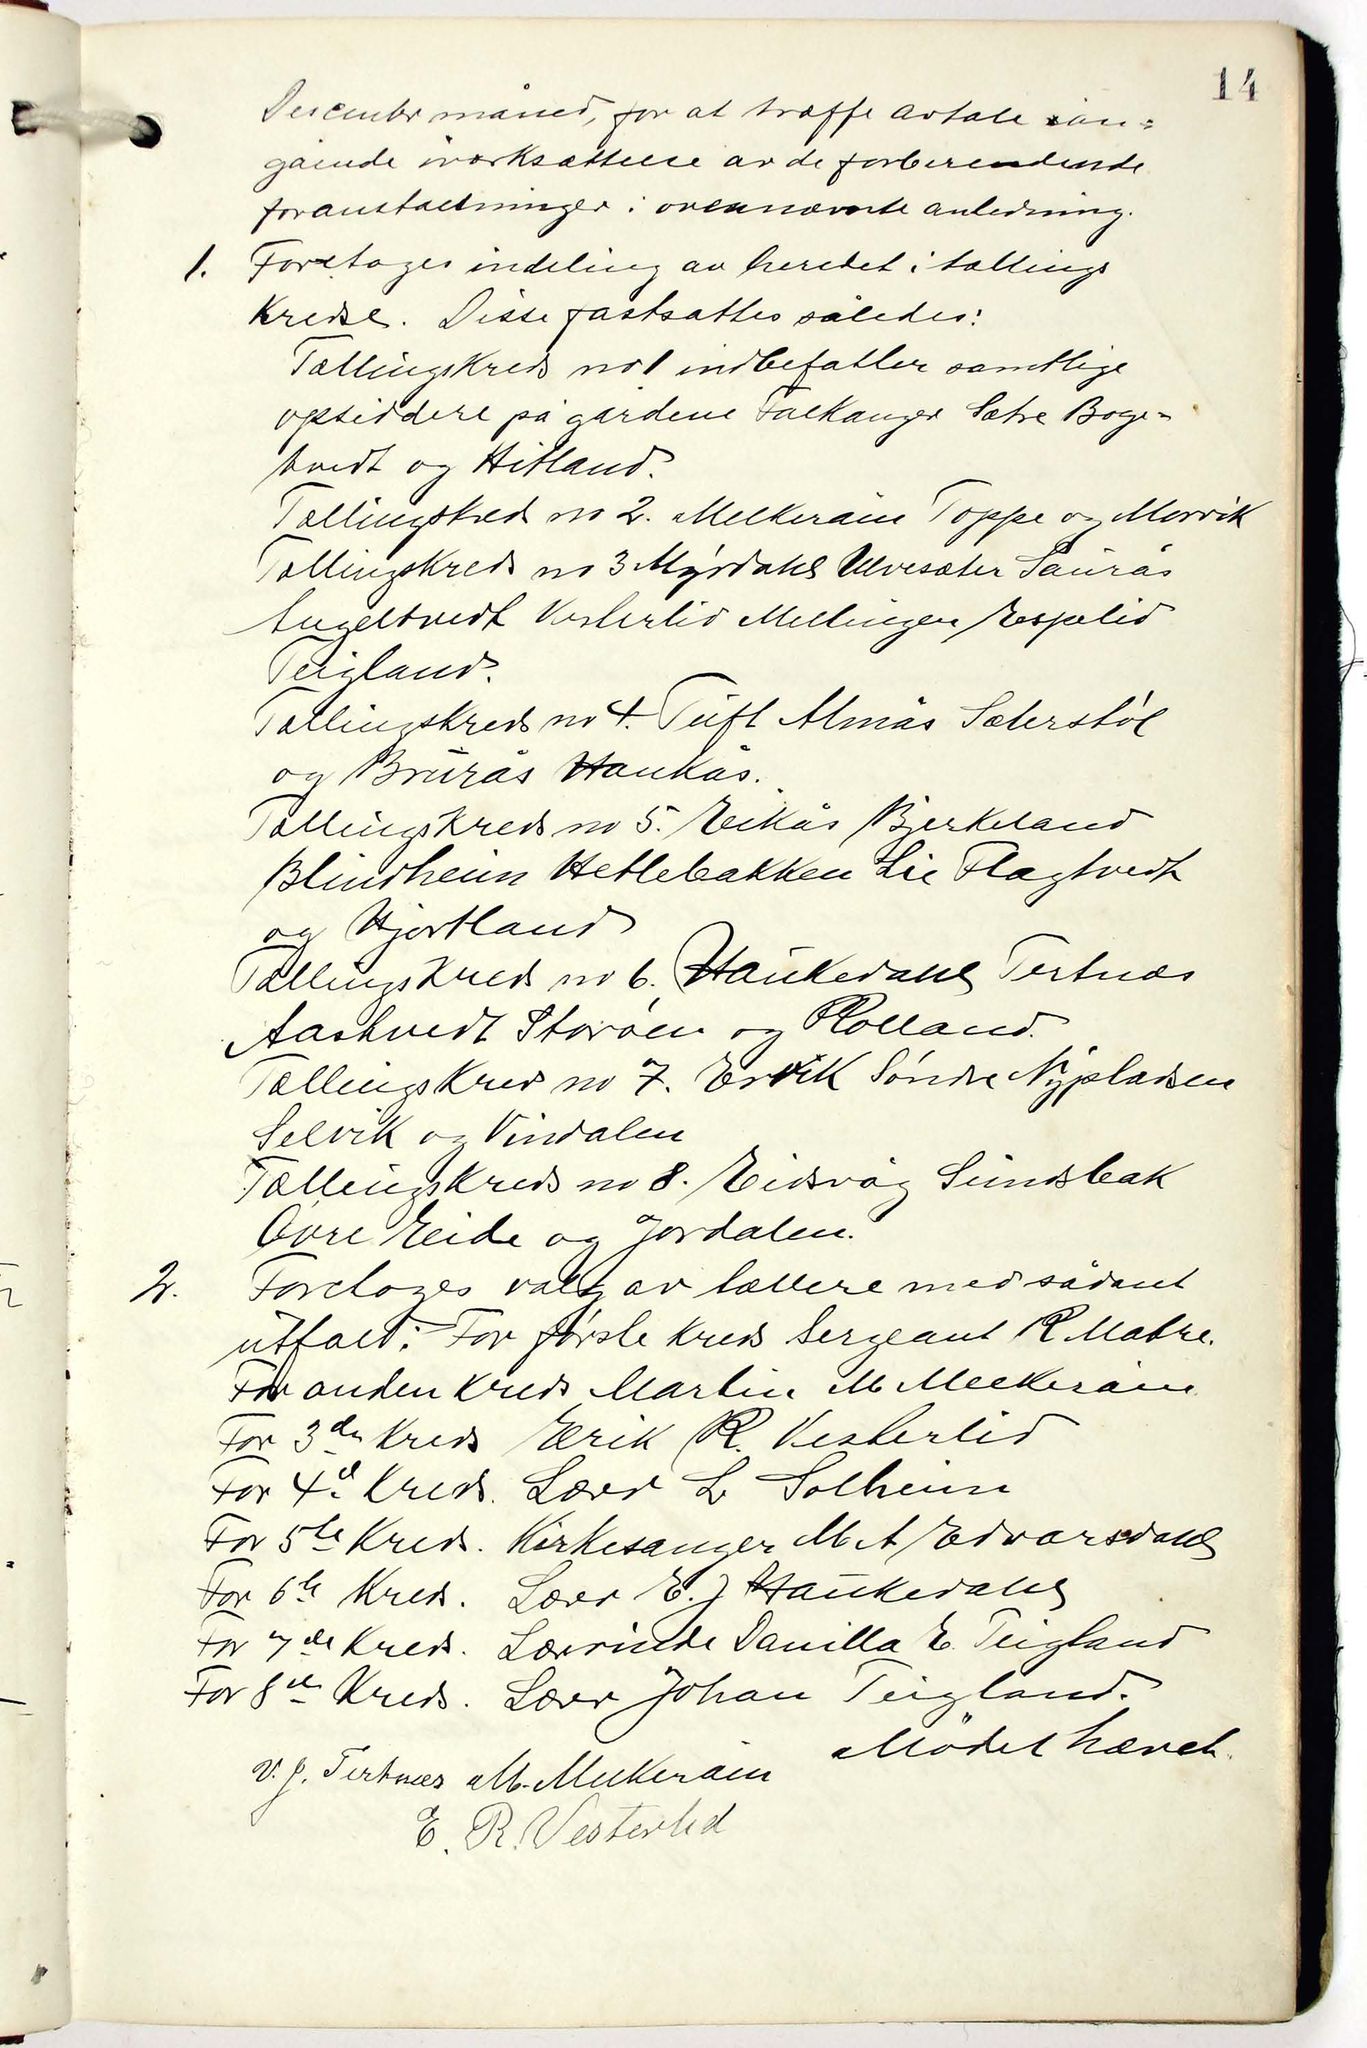 14
December måned, for at træffe avtale an-
gående iværksættelse av de forberendende
foranstaltninger i ovennævnte anledning.
1. Foretages indeling av heredet i tællings
Kredse. Disse fastsattes således:
Tællingskreds no 1 indbefatter samtlige
opsiddere på gårdene Falkanger Sætre Boge-
tvedt og Hitland.
Tællingskreds no 2. Melkeråen Toppe og Morvik
Tællingskreds no 3 Mýrdahl Ulvesæter Saurås
Tugeltvedt Vesterlid Mellingen Espelid
Teigland.
Tællingskreds no 4. Tuft Almås Sæterstøl
og Brurås Haukås.
Tællingskreds no 5. Eikås Bjerkeland
Blindheim Hetlebakken Lie Flagtvedt
og Hjortland
Tællingskreds no 6. Haukedahl Tertnæs
Aastvedt Storøen og Rolland.
Tællingskreds no 7. Ervik Søndre Nypladsen
Selvik og Vindalen
Tællingskreds no 8. Eidsvåg Sundsbak
Øvre Eide og Jordalen.
2. Foretages valg av tællere med sådant
utfald: For første Kreds Sergeant R Matre.
For anden Kreds Martin M Melkeråen
For 3de Kreds Erik R. Vesterlid
For 4d Kreds. Lærer L Solheim
For 5te Kreds. Kirkesanger M A Edvarsdahl
For 6te Kreds. Lærer E. J Haukedahl
For 7de Kreds. Lærerinde Danilla E. Teigland
For 8de Kreds. Lærer Johan Teigland.
Mødet hævet.
V. J. Tertnæs M. Melkeråen
E. R. Vesterlid